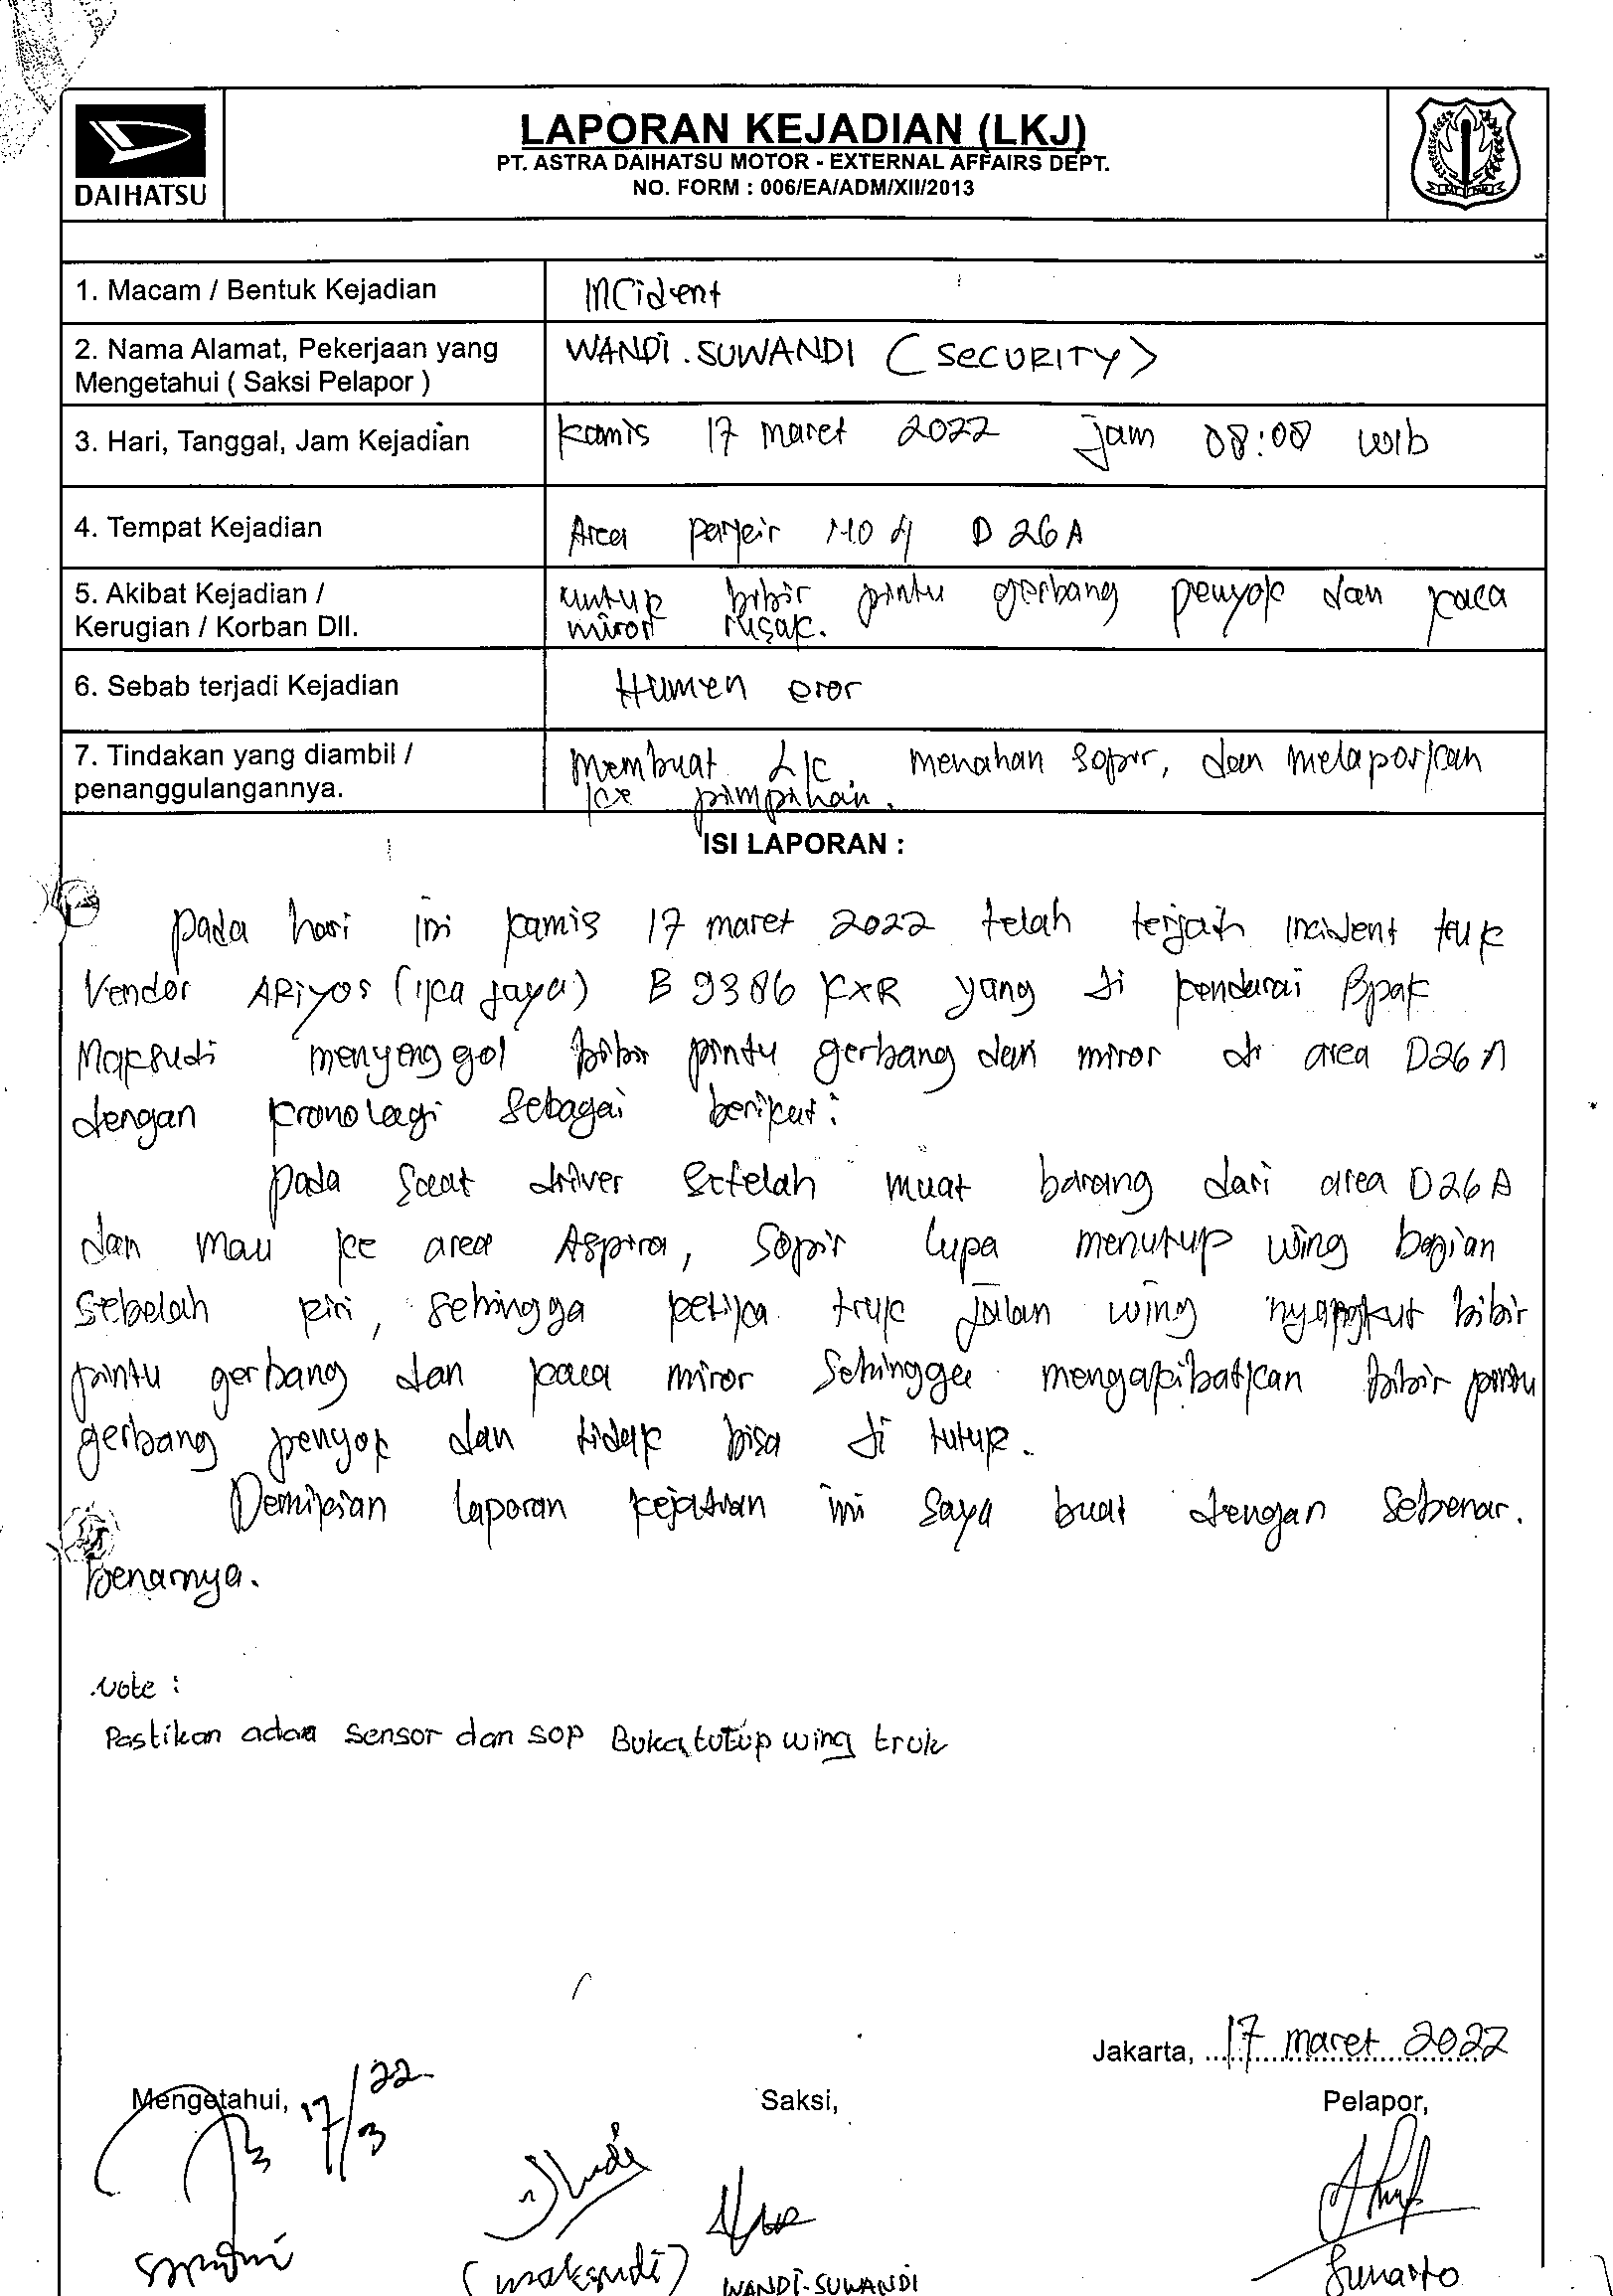 DAIHATSU
LAPORAN KEJADIAN (LKJ)
PT. ASTRA DAIHATSU MOTOR - EXTERNAL AFFAIRS DEPT.
NO. FORM : 006/EA/ADM/XII/2013
1. Macam / Bentuk Kejadian
INCident
2. Nama Alamat, Pekerjaan yang
Mengetahui ( Saksi Pelapor )
WANDI . SUWANDI ( SECURITY )
3. Hari, Tanggal, Jam Kejadian
kamis 17 maret 2022 jam 08:00 wib
4. Tempat Kejadian
Area D 26 A
5. Akibat Kejadian /
Kerugian / Korban Dll.
untuk bibir pintu gerbang penyok dan kaca
miror rusak.
6. Sebab terjadi Kejadian
Humen eror
7. Tindakan yang diambil /
penanggulangannya.
membuat LK, menahan sopir, dan melaporkan
ke pimpinan.
ISI LAPORAN :
pada hari ini kamis 17 maret 2022 telah terjadi incident truk
Vendor ARiyos (ika jaya) B 9386 KXR yang di kendarai Bpak
Maksudi menyenggol bibir pintu gerbang dan miror di area D26 A
dengan kronologi sebagai berikut :
pada saat driver setelah muat barang dari area D26 A
dan mau ke area Aspira, sopir lupa menutup wing bagian
sebelah kiri, sehingga ketika truk jalan wing nyangkut bibir
pintu gerbang dan kaca miror sehingga mengakibatkan bibir pintu
gerbang penyok dan tidak bisa di tutup.
Demikian laporan kejadian ini saya buat dengan sebenar.
benarnya.
Note :
Pastikan adaa sensor dan SOP Buka tutup wing truk
Jakarta, 17 maret 2022
Mengetahui, 17/3 22
Saksi,
Pelapor,
(maksudi)
WANDI-SUWANDI
Sunarto